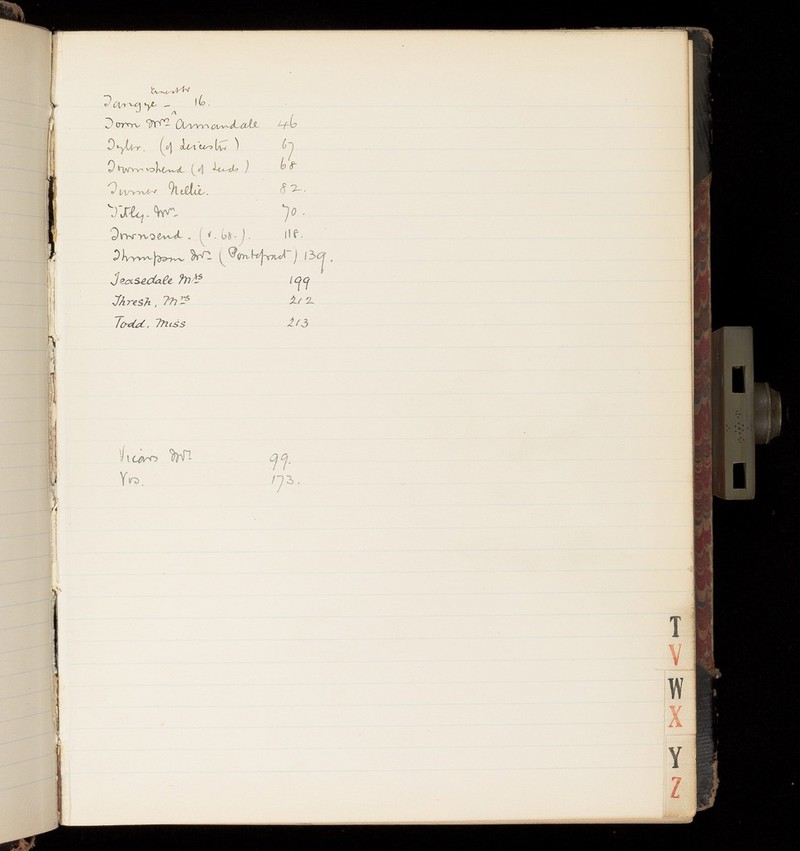 Tangye - 16.
Torn Mrs Annandale 46
Tyler. (of Leicester) 67
Townshend (of Leeds) 68
Turner Nellie. 82.
Titly. Mrs. 70.
Townsend. (v. 68.). 118.
Thompson Mrs (Pontefract) 139.
Teasedale Mrs 199
Thresh, Mrs 212
Todd. Miss 213
Vicars Mrs 99.
173.
T
V
W
X
Y
Z